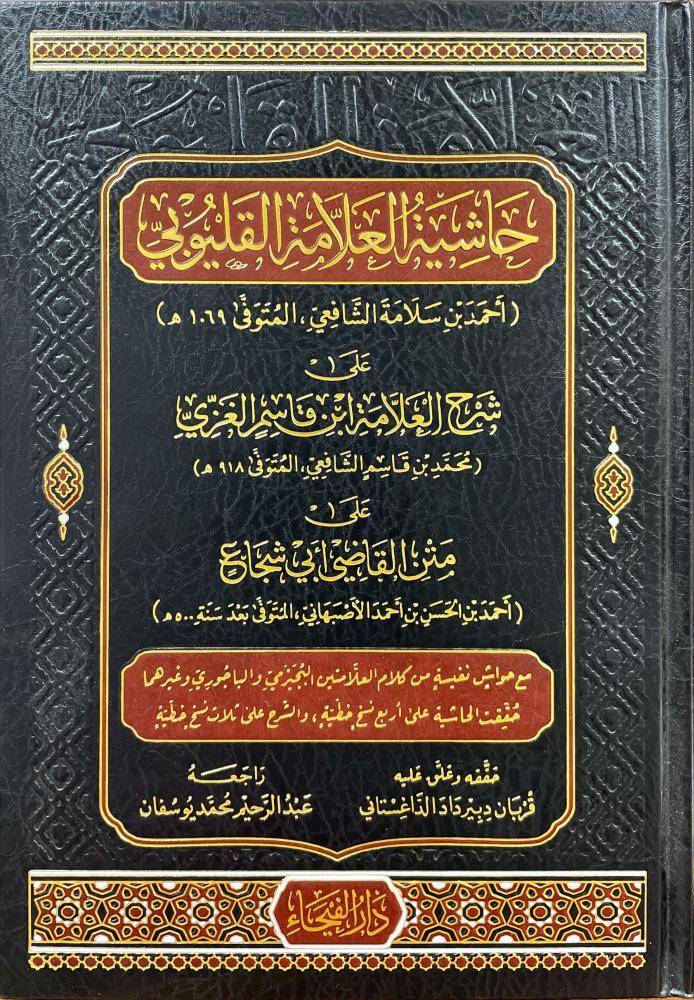 حَاشِيَةُ العَلَّامَةِ القَليُوبِي
(أَحْمَد بْن سَلَامَةَ الشَّافِعِيِّ، المُتَوَفَّى ١٠٦٩ هـ)
عَلَى
شَرْحِ العَلَّامَةِ ابْنِ قَاسِمٍ الغَزِّيِّ
(مُحَمَّد بْن قَاسِمٍ الشَّافِعِيِّ، المُتَوَفَّى ٩١٨ هـ)
عَلَى
مَتْنِ القَاضِي أَبِي شُجَاعٍ
(أَحْمَد بْن الحَسَن بْن أَحْمَد الأَصْبَهَانِي، المُتَوَفَّى بَعْدَ سَنَةِ ٥٠٠ هـ)
مع حواشٍ نفيسةٍ من كلام العلّامتين البُجَيْرَمِيِّ والباجوريِّ وغيرهما
حُقِّقت الحاشية على أربع نسخٍ خطّيّةٍ، والشّرح على ثلاث نسخٍ خطّيّةٍ
حَقَّقه وعَلَّق عَليه
قُربَان دِبِير دَادَا الدَّاغِسْتَاني
رَاجَعَهُ
عَبْدُ الرَّحِيم مُحَمَّد يُوسُفَان
دَارُ الفَيْحَاءِ